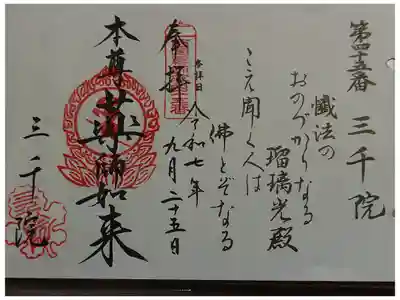 第四十五番 三千院
懺法の
おのづからなる
瑠璃光殿
こえ聞く人は
佛とぞなる
参拝日 令和七年
九月二十五日
奉拝
本尊 薬師如来
三千院